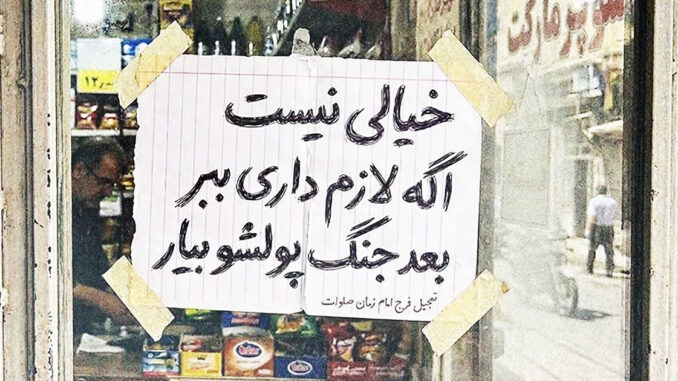 سوپرمارکت
خیالی نیست
اگه لازم داری ببر
بعد جنگ پولشو بیار
تعجیل فرج امام زمان صلوات